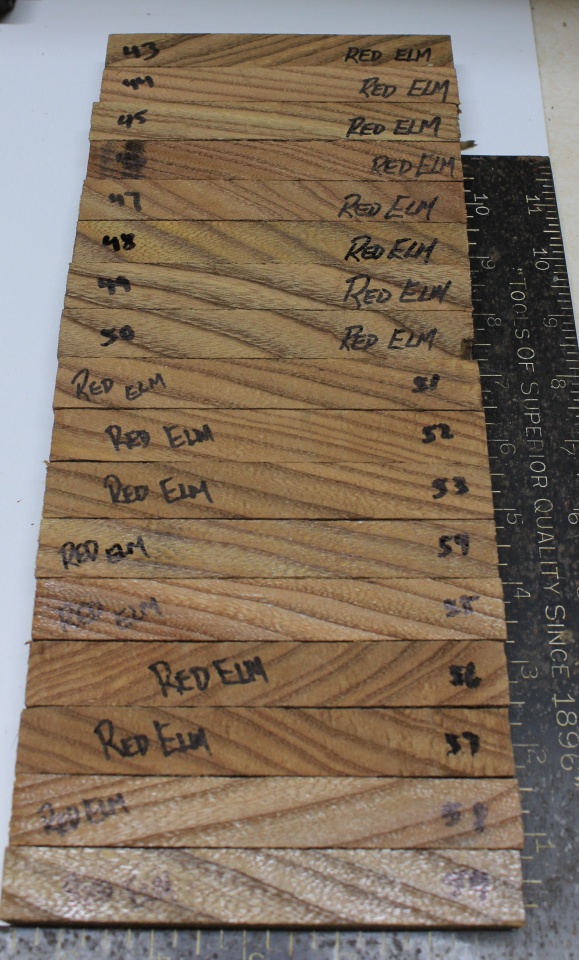 43 RED ELM
44 RED ELM
45 RED ELM
RED ELM
47 RED ELM
48 RED ELM
49 RED ELM
50 RED ELM
RED ELM 51
RED ELM 52
RED ELM 53
RED ELM 54
RED ELM 55
RED ELM 56
RED ELM 57
RED ELM 58
"TOOLS OF SUPERIOR QUALITY SINCE 1896
11
10
9
8
7
6
10
9
8
7
6
5
4
3
2
1